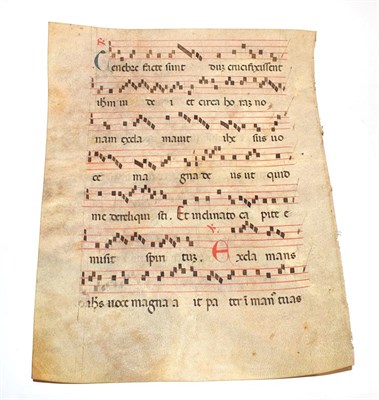 Cenebre facte sunt duz crucifixissent
ihm iu de i et circa ho raz no
nam excla mauit ihs suo
ce ma gna de us ut quid
me dereliqui sti. Et inclinato ca pite e
misit spiri tuz. Exclamans
ihs uoce magna a it pa ter i man tuas